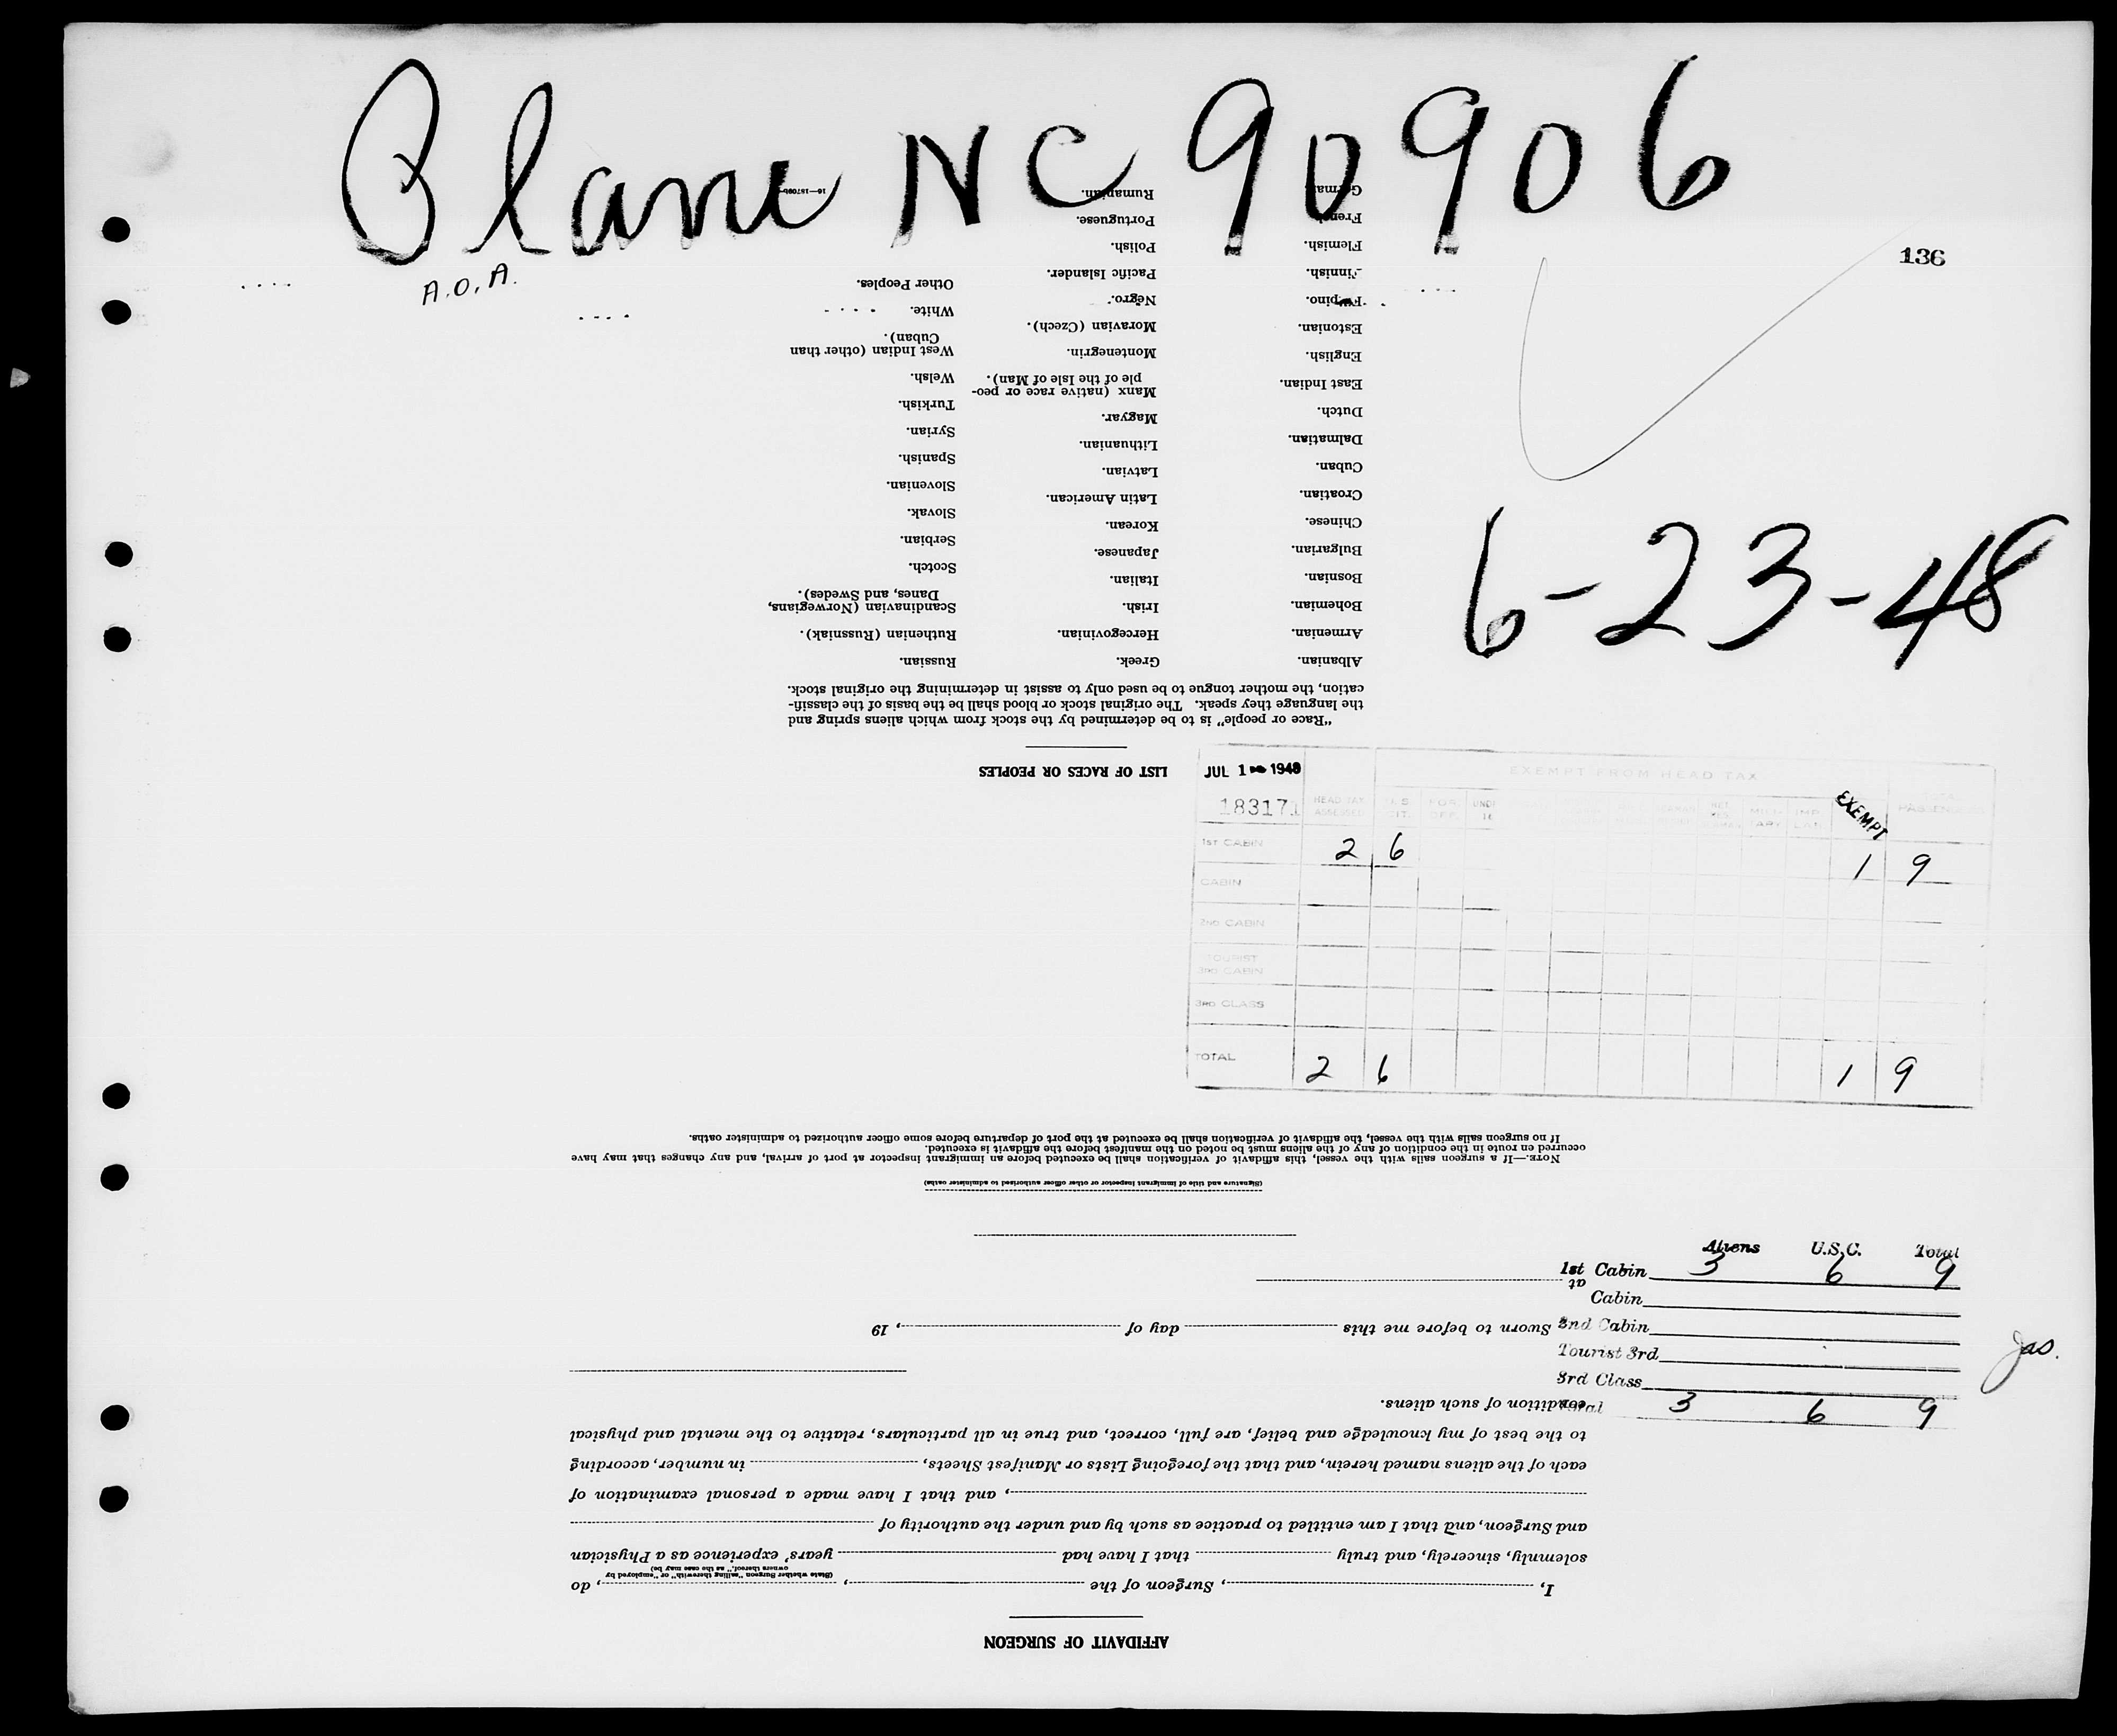 Plane NC 90906
136
A.O.A.
6-23-48
JUL 1 1948
EXEMPT FROM HEAD TAX
183171
HEAD TAX ASSESSED
U.S. CIT.
FOR.
UND 16
EXEMPT
1ST CABIN 2 6 1 9
CABIN
2ND CABIN
TOURIST 3RD CABIN
3RD CLASS
TOTAL 2 6 1 9
Aliens U.S.C. Total
1st Cabin 3 6 9
Cabin
2nd Cabin
Tourist 3rd
3rd Class
Total 3 6 9
Jas.
AFFIDAVIT OF SURGEON
I, , Surgeon of the , (State whether Surgeon "sailing therewith" or "employed by owners thereof," as the case may be), do
solemnly, sincerely, and truly that I have had years' experience as a Physician
and Surgeon, and that I am entitled to practice as such by and under the authority of
, and that I have made a personal examination of
each of the aliens named herein, and that the foregoing Lists or Manifest Sheets, in number, according
to the best of my knowledge and belief, are full, correct, and true in all particulars, relative to the mental and physical
condition of such aliens.
Sworn to before me this day of , 19
at
(Signature and title of immigrant inspector or other officer authorized to administer oaths)
NOTE.—If a surgeon sails with the vessel, this affidavit of verification shall be executed before an immigrant inspector at port of arrival, and any changes that may have
occurred en route in the condition of any of the aliens must be noted on the manifest before the affidavit is executed.
If no surgeon sails with the vessel, the affidavit of verification shall be executed at the port of departure before some officer authorized to administer oaths.
LIST OF RACES OR PEOPLES
"Race or people" is to be determined by the stock from which aliens spring and
the language they speak. The original stock or blood shall be the basis of the classifi-
cation, the mother tongue to be used only to assist in determining the original stock.
Albanian.
Armenian.
Bohemian.
Bosnian.
Bulgarian.
Chinese.
Croatian.
Cuban.
Dalmatian.
Dutch.
East Indian.
English.
Estonian.
Filipino.
Finnish.
Flemish.
French.
German.
Greek.
Hercegovinian.
Irish.
Italian.
Japanese.
Korean.
Latin American.
Latvian.
Lithuanian.
Magyar.
Manx (native race or peo-
ple of the Isle of Man).
Montenegrin.
Moravian (Czech).
Negro.
Pacific Islander.
Polish.
Portuguese.
Rumanian.
Russian.
Ruthenian (Russniak).
Scandinavian (Norwegians,
Danes, and Swedes).
Scotch.
Serbian.
Slovak.
Slovenian.
Spanish.
Syrian.
Turkish.
Welsh.
West Indian (other than
Cuban).
White.
Other Peoples.